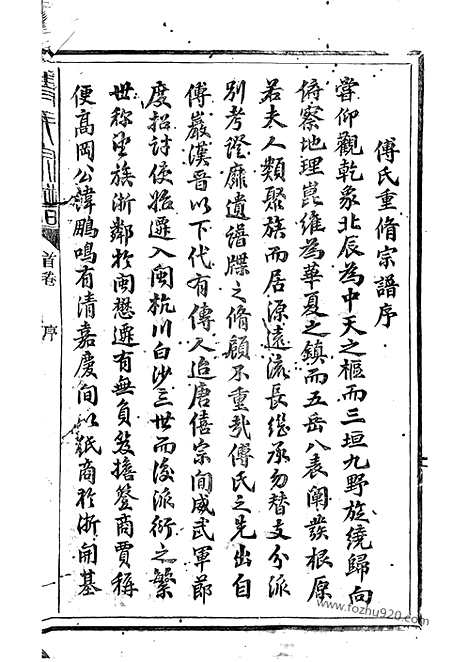 傅氏重脩宗譜序
嘗仰觀乾象北辰為中天之樞而三垣九野旋繞歸向
俯察地理崑維為華夏之鎮而五岳八表闡發根原
若夫人類聚族而居源遠流長繼承勿替支分派
別考證靡遺譜牒之脩顧不重哉傅氏之先出自
傅巖漢晉以下代有傳人迨唐僖宗間威武軍節
度招討使始遷入閩杭川白沙三世而後派衍之繁
世称望族浙鄰於閩懋遷有無負笈擔簦商賈称
便高岡公諱鵬鳴有清嘉慶間以紙商於浙開基
首卷
序
www.fozhu920.com